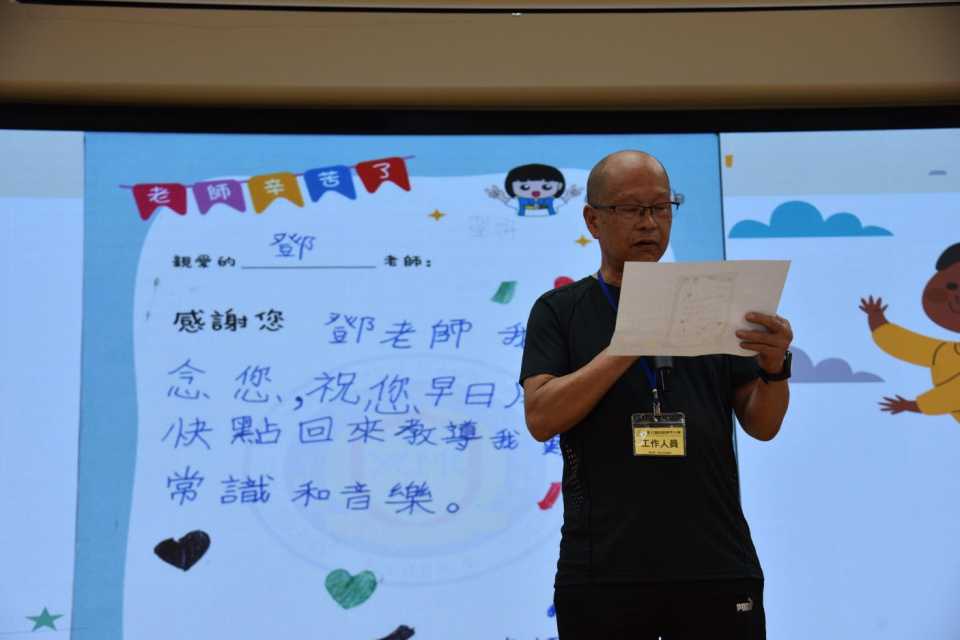 老師辛苦了
親愛的 鄧 老師:
感謝您 鄧老師 我
念您,祝您早日
快點回來教導我
常識和音樂。
工作人員
PUMA